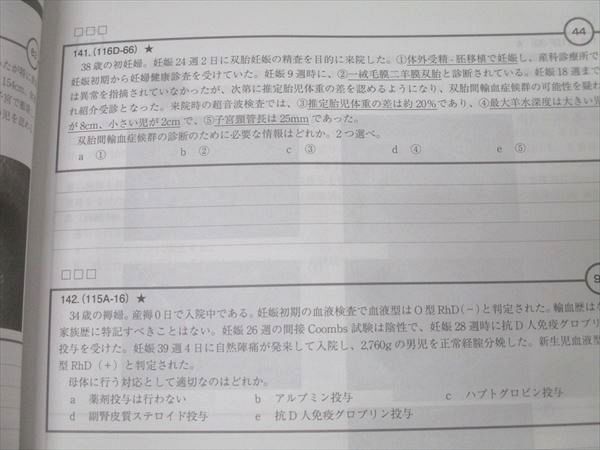 44
141.(116D-66) ★
38歳の初妊婦。妊娠24週2日に双胎妊娠の精査を目的に来院した。①体外受精-胚移植で妊娠し、産科診療所で
妊娠初期から妊婦健康診査を受けていた。妊娠9週時に、②一絨毛膜二羊膜双胎と診断されている。妊娠18週まで
は異常を指摘されていなかったが、次第に推定胎児体重の差を認めるようになり、双胎間輸血症候群の可能性を疑わ
れ紹介受診となった。来院時の超音波検査では、③推定胎児体重の差は約20%であり、④最大羊水深度は大きい児
が8cm、小さい児が2cmで、⑤子宮頸管長は25mmであった。
双胎間輸血症候群の診断のために必要な情報はどれか。2つ選べ。
a ① b ② c ③ d ④ e ⑤
142.(115A-16) ★
34歳の褥婦。産褥0日で入院中である。妊娠初期の血液検査で血液型はO型RhD(-)と判定された。輸血歴は
家族歴に特記すべきことはない。妊娠26週の間接Coombs試験は陰性で、妊娠28週時に抗D人免疫グロブリ
投与を受けた。妊娠39週4日に自然陣痛が発来して入院し、2,760gの男児を正常経腟分娩した。新生児血液型
型RhD(+)と判定された。
母体に行う対応として適切なのはどれか。
a 薬剤投与は行わない b アルブミン投与 c ハプトグロビン投与
d 副腎皮質ステロイド投与 e 抗D人免疫グロブリン投与